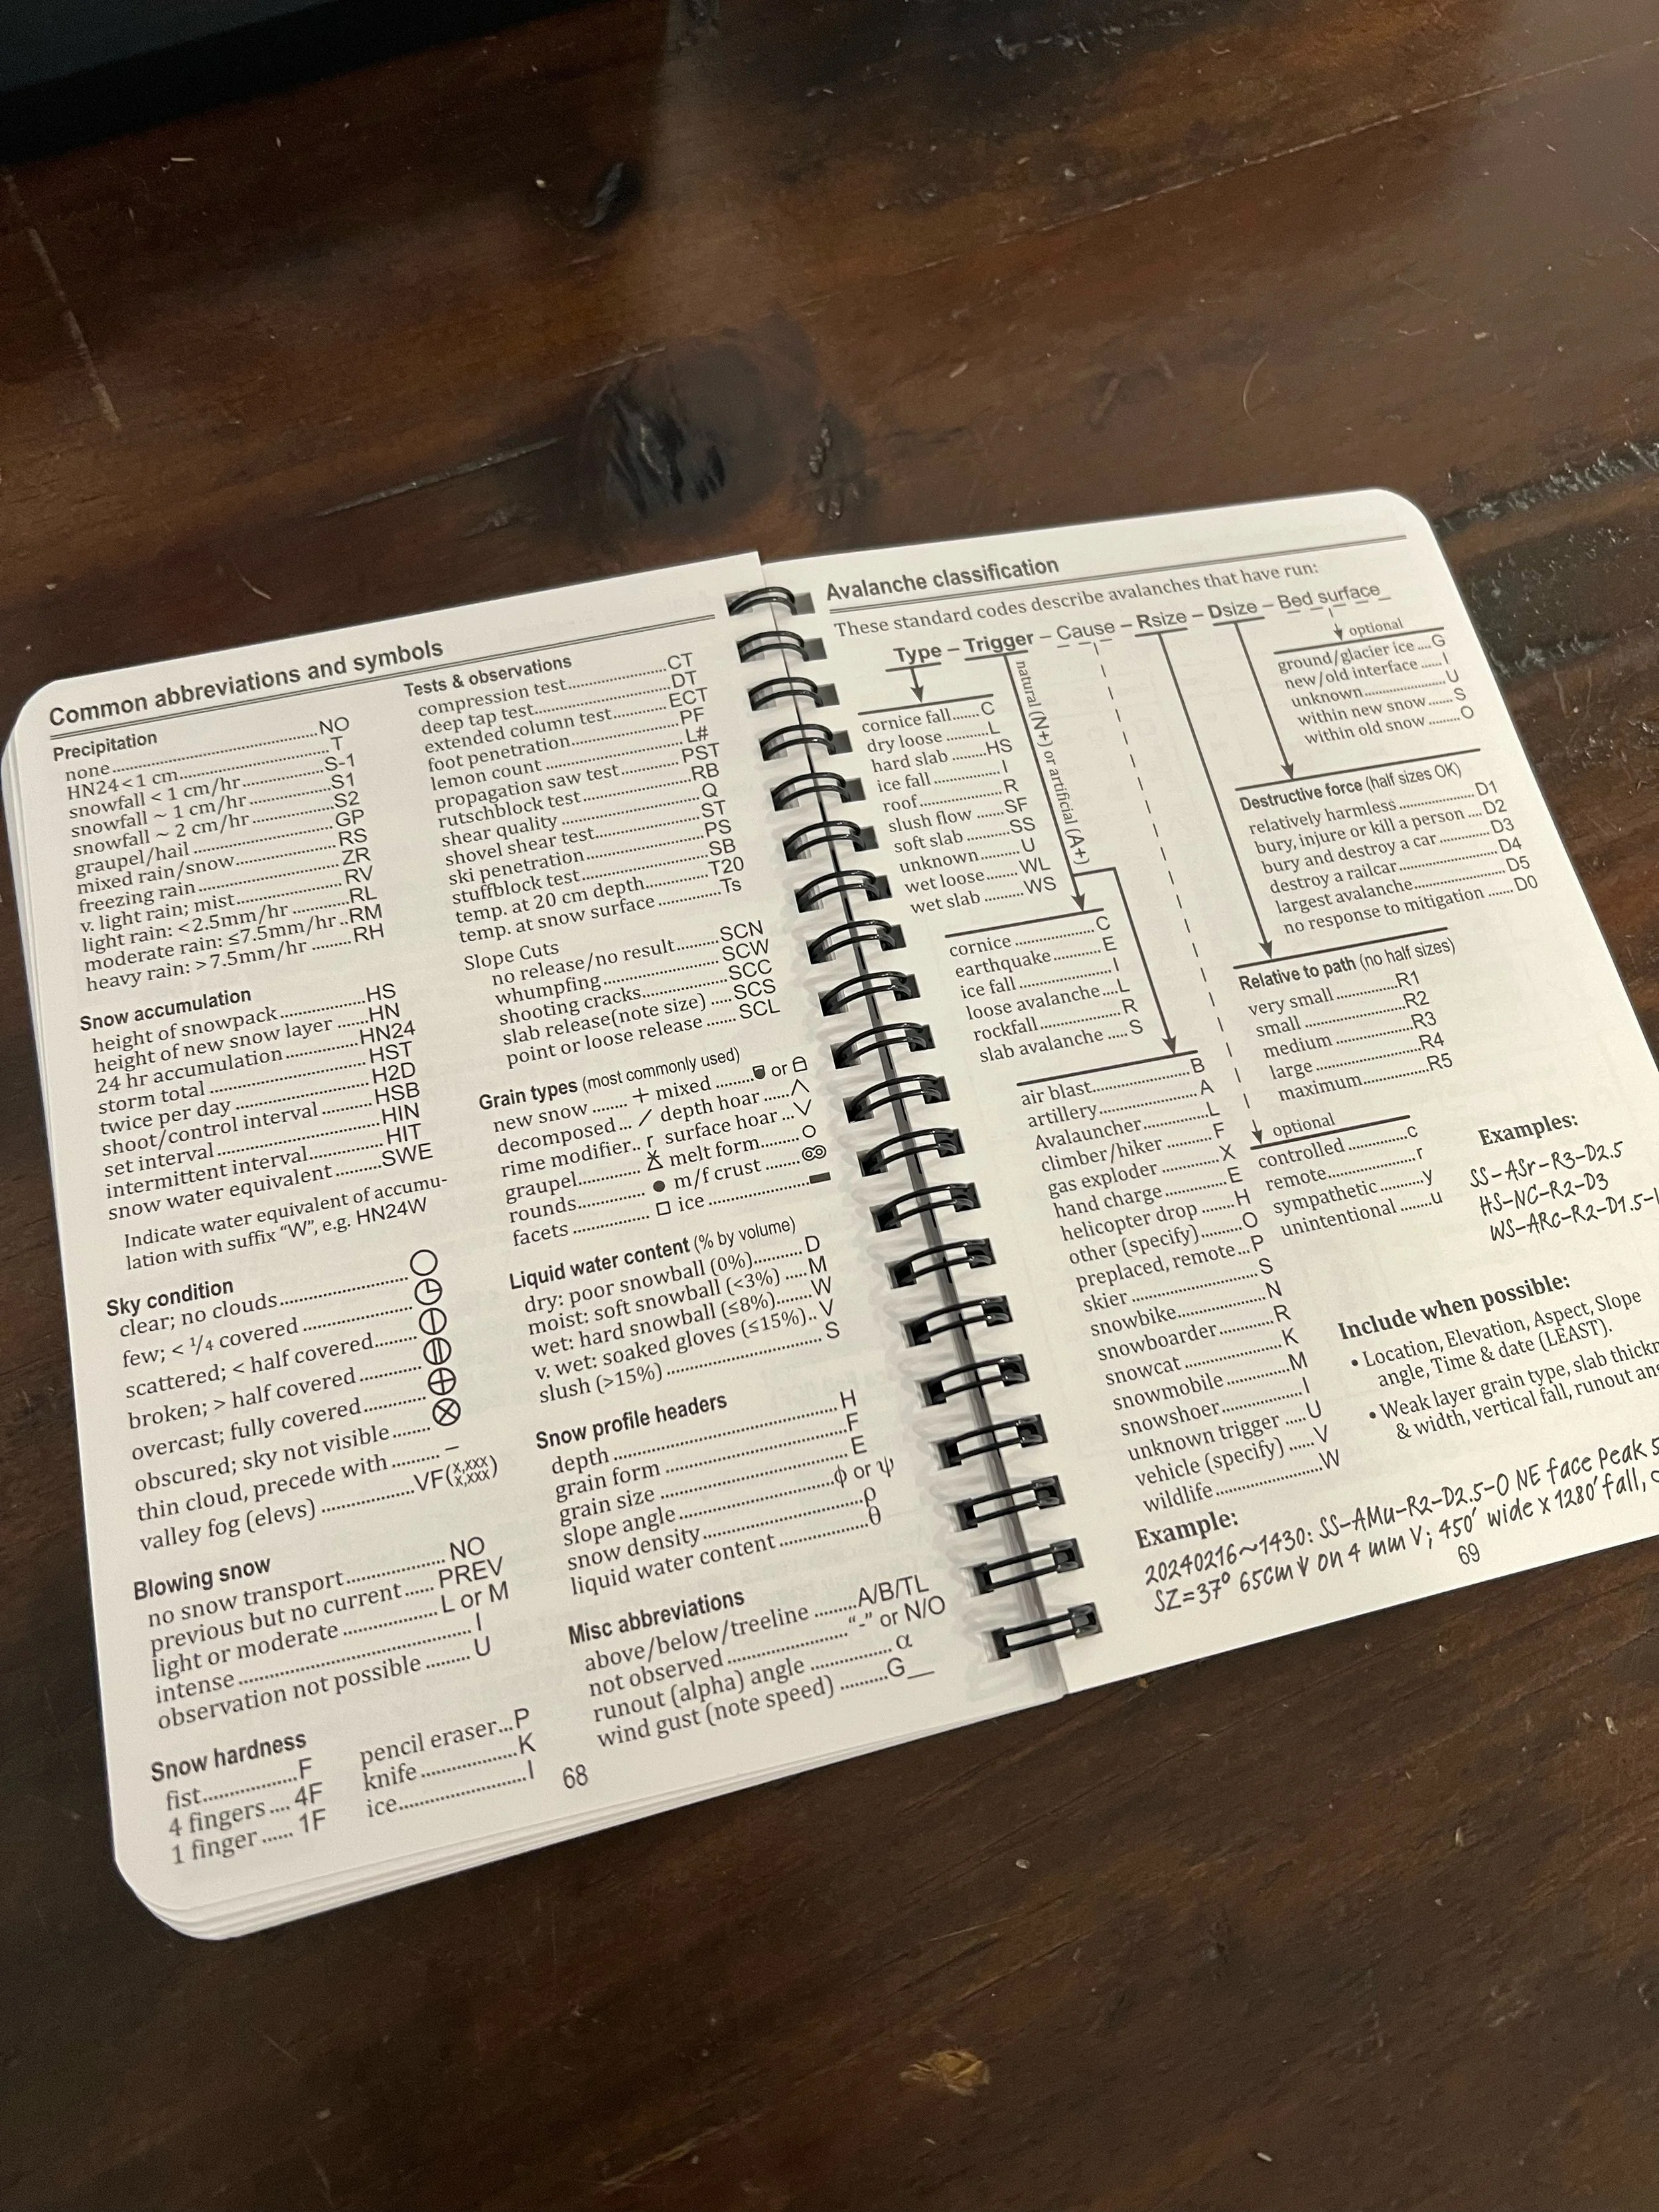 Common abbreviations and symbols
Precipitation
none............NO
HN24<1 cm............T
snowfall < 1 cm/hr............S-1
snowfall ~ 1 cm/hr............S1
snowfall ~ 2 cm/hr............S2
graupel/hail............GP
mixed rain/snow............RS
freezing rain............ZR
v. light rain; mist............RV
light rain: <2.5mm/hr............RL
moderate rain: ≤7.5mm/hr..RM
heavy rain: >7.5mm/hr........RH
Snow accumulation
height of snowpack............HS
height of new snow layer......HN
24 hr accumulation............HN24
storm total............HST
twice per day............H2D
shoot/control interval............HSB
set interval............HIN
intermittent interval............HIT
snow water equivalent............SWE
Indicate water equivalent of accumu-
lation with suffix "W", e.g. HN24W
Sky condition
clear; no clouds............○
few; < 1/4 covered............
scattered; < half covered............⦶
broken; > half covered............
overcast; fully covered............⊕
obscured; sky not visible........⊗
thin cloud, precede with......... –
valley fog (elevs)............VF(x,xxx
x,xxx)
Blowing snow
no snow transport............NO
previous but no current......PREV
light or moderate............L or M
intense............I
observation not possible........U
Snow hardness
fist............F
4 fingers....4F
1 finger......1F
pencil eraser...P
knife............K
ice............I
Tests & observations
compression test............CT
deep tap test............DT
extended column test............ECT
foot penetration............PF
lemon count............L#
propagation saw test............PST
rutschblock test............RB
shear quality............Q
shovel shear test............ST
ski penetration............PS
stuffblock test............SB
temp. at 20 cm depth............T20
temp. at snow surface............Ts
Slope Cuts
no release/no result.........SCN
whumpfing............SCW
shooting cracks............SCC
slab release(note size)....SCS
point or loose release......SCL
Grain types (most commonly used)
new snow.......+ mixed........ or
decomposed... / depth hoar.....∧
rime modifier.. r surface hoar...∨
graupel............ melt form........○
rounds............● m/f crust.......
facets............□ ice............▬
Liquid water content (% by volume)
dry: poor snowball (0%)..........D
moist: soft snowball (<3%).....M
wet: hard snowball (≤8%).......W
v. wet: soaked gloves (≤15%)..V
slush (>15%)............S
Snow profile headers
depth............H
grain form............F
grain size............E
slope angle............ϕ or ψ
snow density............ρ
liquid water content............θ
Misc abbreviations
above/below/treeline........A/B/TL
not observed............"-" or N/O
runout (alpha) angle............α
wind gust (note speed).........G__
68
Avalanche classification
These standard codes describe avalanches that have run:
Type – Trigger – Cause – Rsize – Dsize – Bed surface
natural (N+) or artificial (A+)
cornice fall......C
dry loose.........L
hard slab......HS
ice fall............I
roof............R
slush flow.....SF
soft slab......SS
unknown........U
wet loose.....WL
wet slab.........WS
cornice............C
earthquake...........E
ice fall............I
loose avalanche...L
rockfall............R
slab avalanche....S
air blast............B
artillery............A
Avalauncher............L
climber/hiker.........F
gas exploder............X
hand charge............E
helicopter drop.......H
other (specify)........O
preplaced, remote...P
skier............S
snowbike............N
snowboarder............R
snowcat............K
snowmobile............M
snowshoer............I
unknown trigger.....U
vehicle (specify)......V
wildlife............W
optional
ground/glacier ice....G
new/old interface......I
unknown............U
within new snow.......S
within old snow........O
Destructive force (half sizes OK)
relatively harmless............D1
bury, injure or kill a person....D2
bury and destroy a car............D3
destroy a railcar............D4
largest avalanche............D5
no response to mitigation......D0
Relative to path (no half sizes)
very small............R1
small............R2
medium............R3
large............R4
maximum............R5
optional
controlled............c
remote............r
sympathetic..........y
unintentional.......u
Examples:
SS-ASr-R3-D2.5
HS-NC-R2-D3
WS-ARc-R2-D1.5-
Include when possible:
• Location, Elevation, Aspect, Slope
angle, Time & date (LEAST).
• Weak layer grain type, slab
& width, vertical fall, runout
Example:
20240216~1430: SS-AMu-R2-D2.5-O NE face Peak
SZ=37° 65cm↓ on 4 mm V; 450' wide x 1280' fall,
69